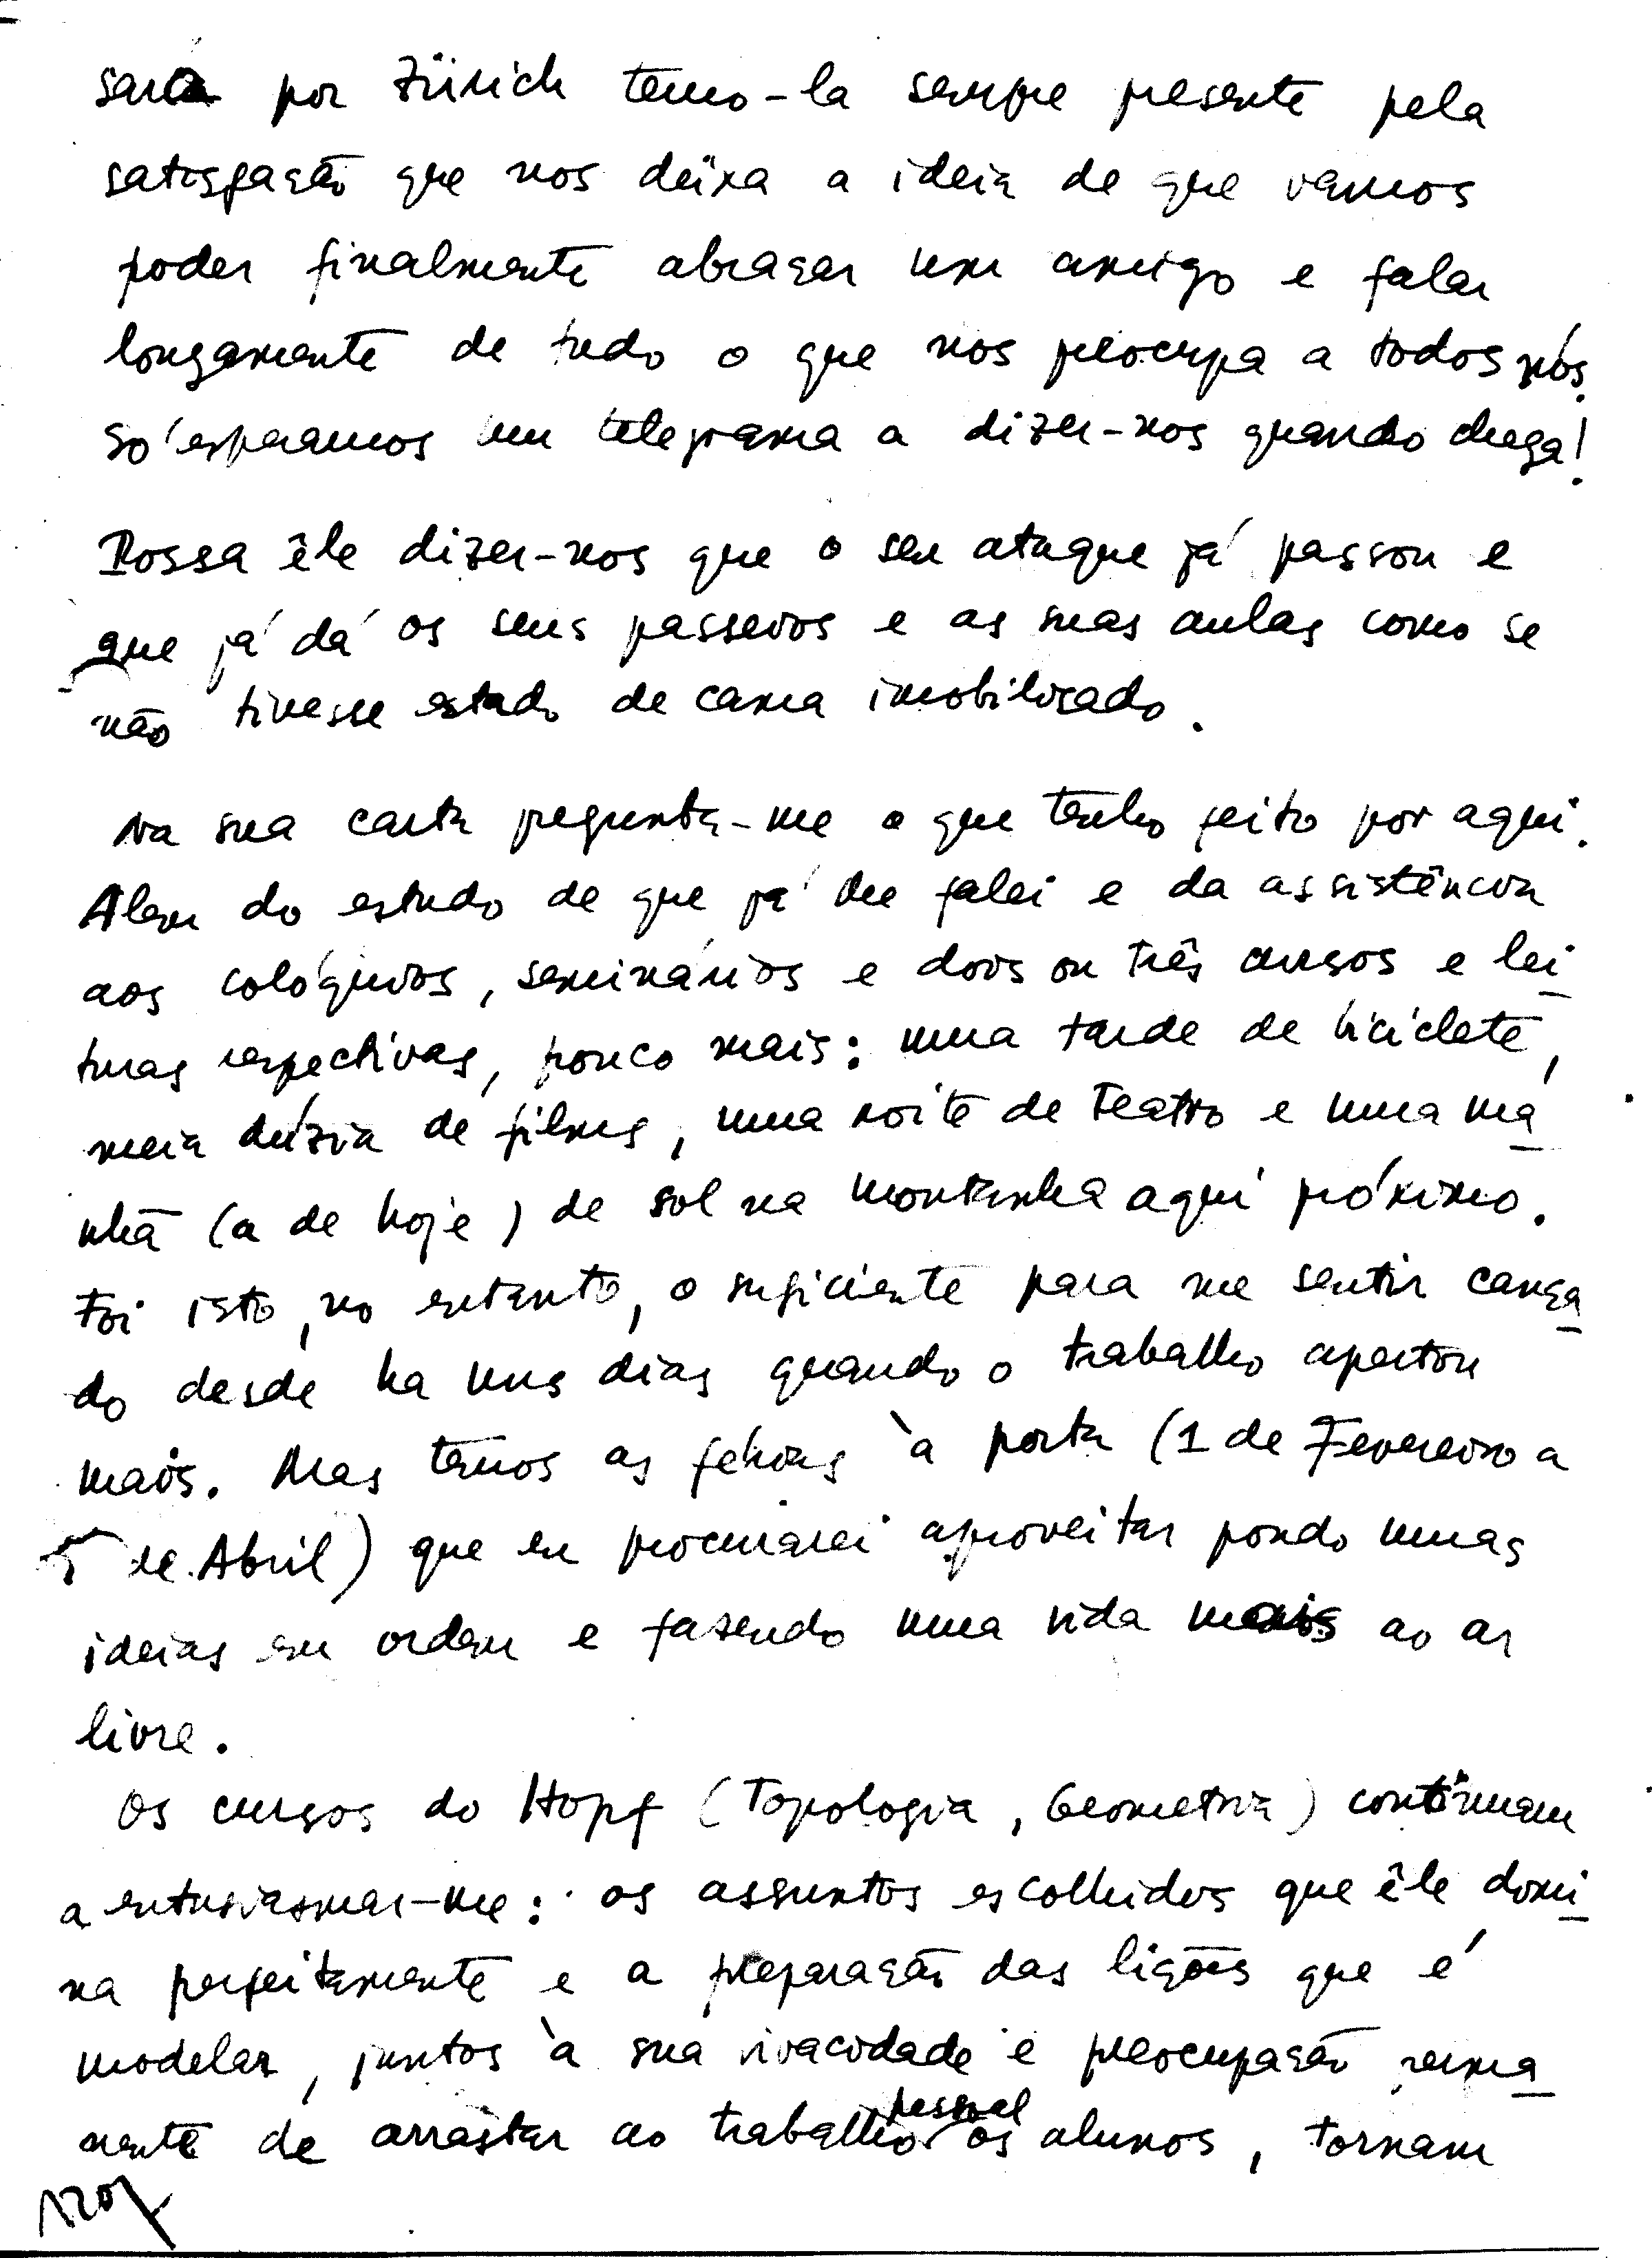 sará por Zürich temo-la sempre presente pela
satisfação que nos deixa a ideia de que vamos
poder finalmente abraçar um amigo e falar
longamente de tudo o que nos preocupa a todos nós.
só esperamos um telegrama a dizer-nos quando chega!
Possa êle dizer-nos que o seu ataque já passou e
que já dá os seus passeios e as suas aulas como se
não tivesse estado de cama imobilisado.
Na sua carta pregunta-me o que tenho feito por aqui.
Alem do estudo de que já lhe falei e da assistência
aos colóquios, seminários e dois ou três cursos e lei
turas respectivas, pouco mais: uma tarde de biciclete,
meia dúzia de filmes, uma noite de teatro e uma ma
nhã (a de hoje) de sol na montanha aqui próximo.
Foi isto, no entanto, o suficiente para me sentir cansa
do desde ha uns dias quando o trabalho apertou
mais. Mas temos as férias à porta (1 de Fevereiro a
5 de Abril) que eu procurarei aproveitar pondo umas
ideias em ordem e fazendo uma vida mais ao ar
livre.
Os cursos do Hopf (Topologia, Geometria) continuam
a entusiasmar-me: os assuntos escolhidos que êle domi
na perfeitamente e a preparação das lições que é
modelar, juntos à sua vivacidade e preocupação perma
nente de arrastar ao trabalho pessoal os alunos, tornam